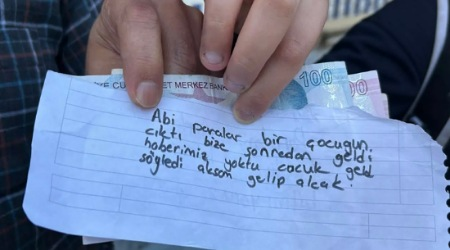 CU ET MERKEZ BANK
100
Abi paralar bir çocuğun
çıktı bize sonradan geldi
haberimiz yoktu çocuk geld
söyledi akşam gelip alcak.